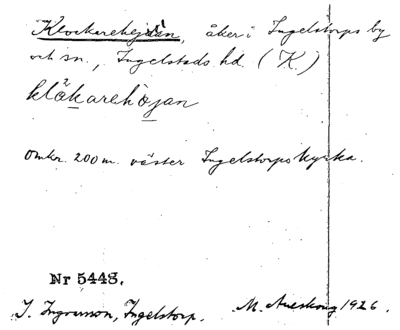 Klockarehejdan, åker i Ingelstorps by
och sn., Ingelstads hd. (K.)
klåkarehöjan
Omkr. 200 m. väster Ingelstorps kyrka.
Nr 5448.
I. Ingvarsson, Ingelstorp. M. Areskoug 1926.